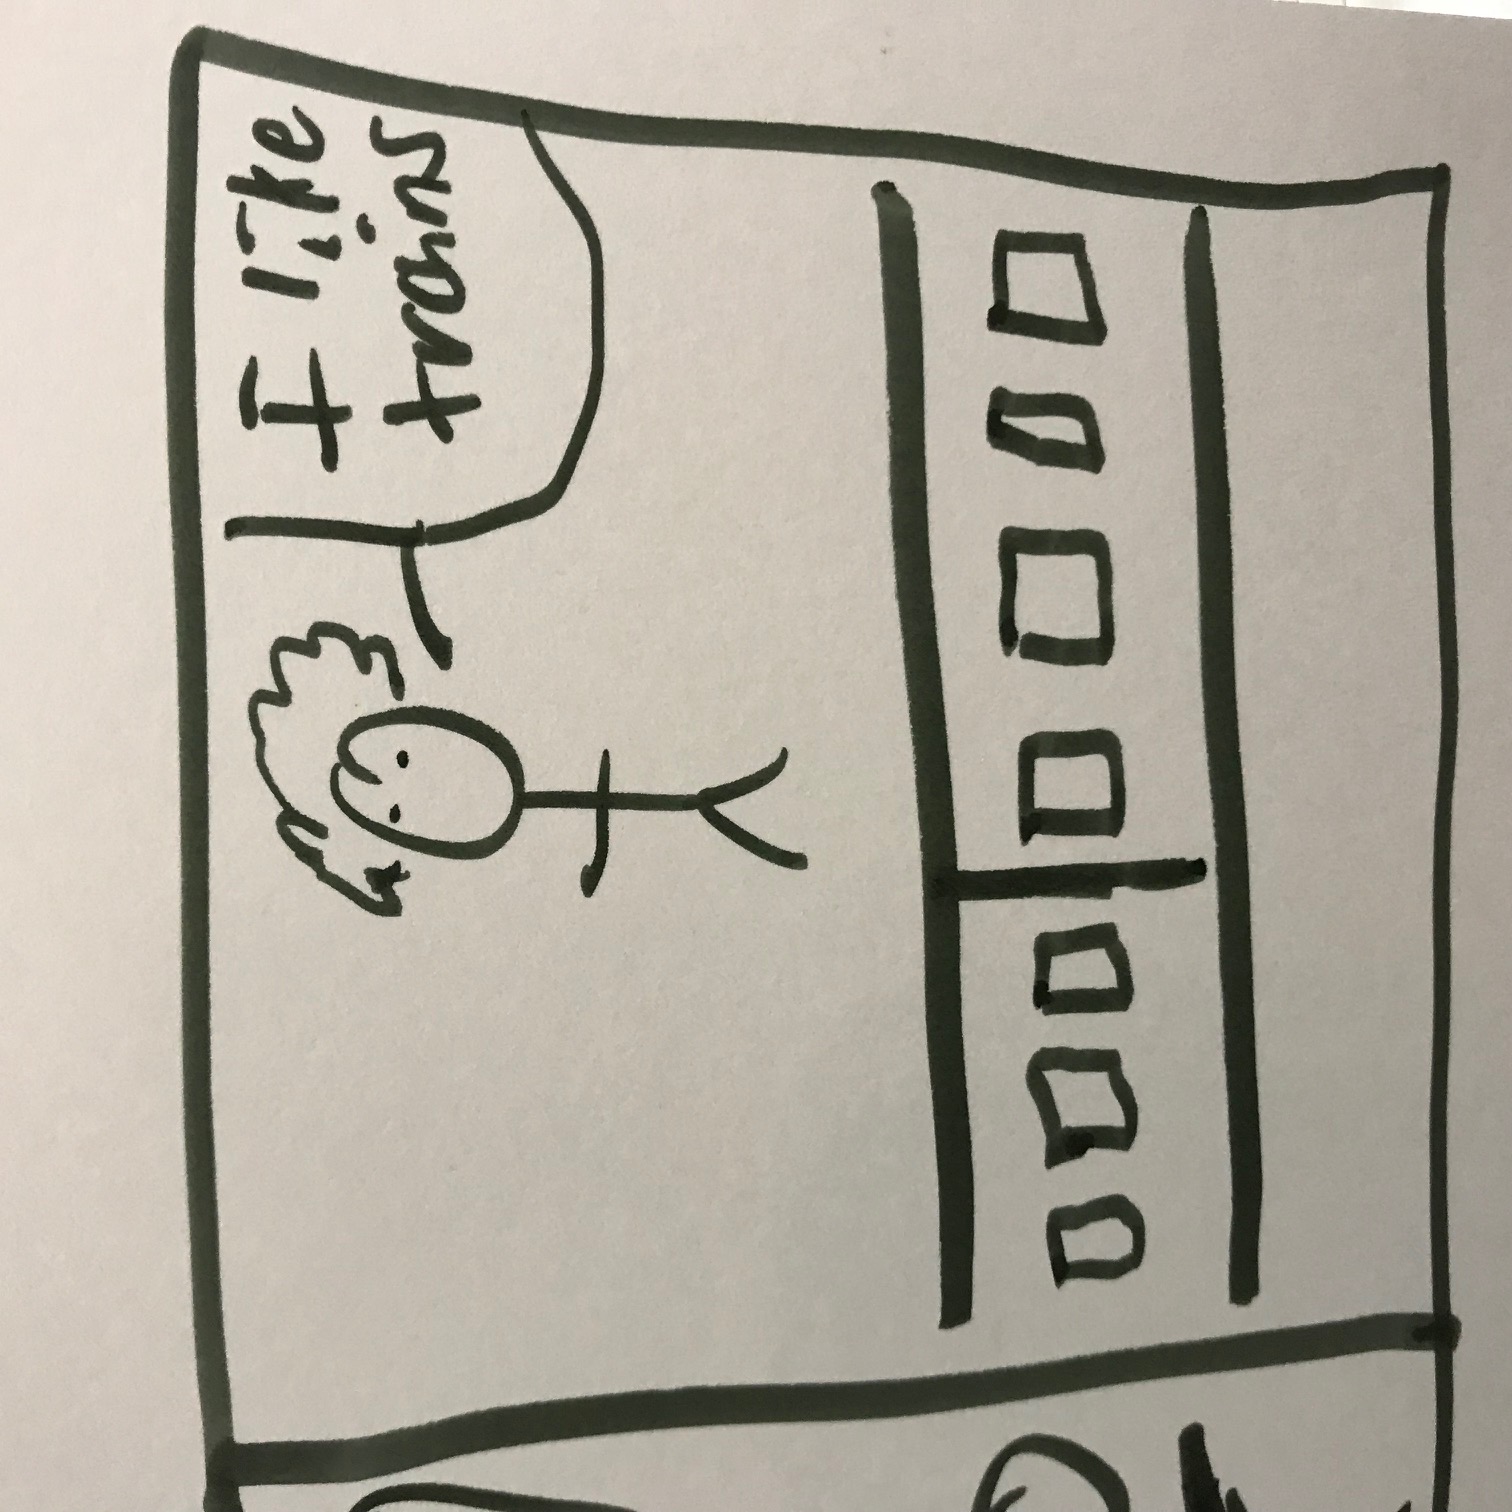 I like
trains